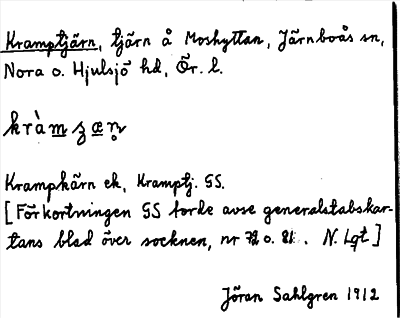 Kramptjärn, tjärn å Moshyttan, Järnboås sn,
Nora o. Hjulsjö hd, Ör. l.
kràmʒæn̥
Krampkärn ek, Kramptj. GS.
[Förkortningen GS torde avse generalstabskar-
tans blad över socknen, nr 72 o. 81. N. Lgt]
Jöran Sahlgren 1912